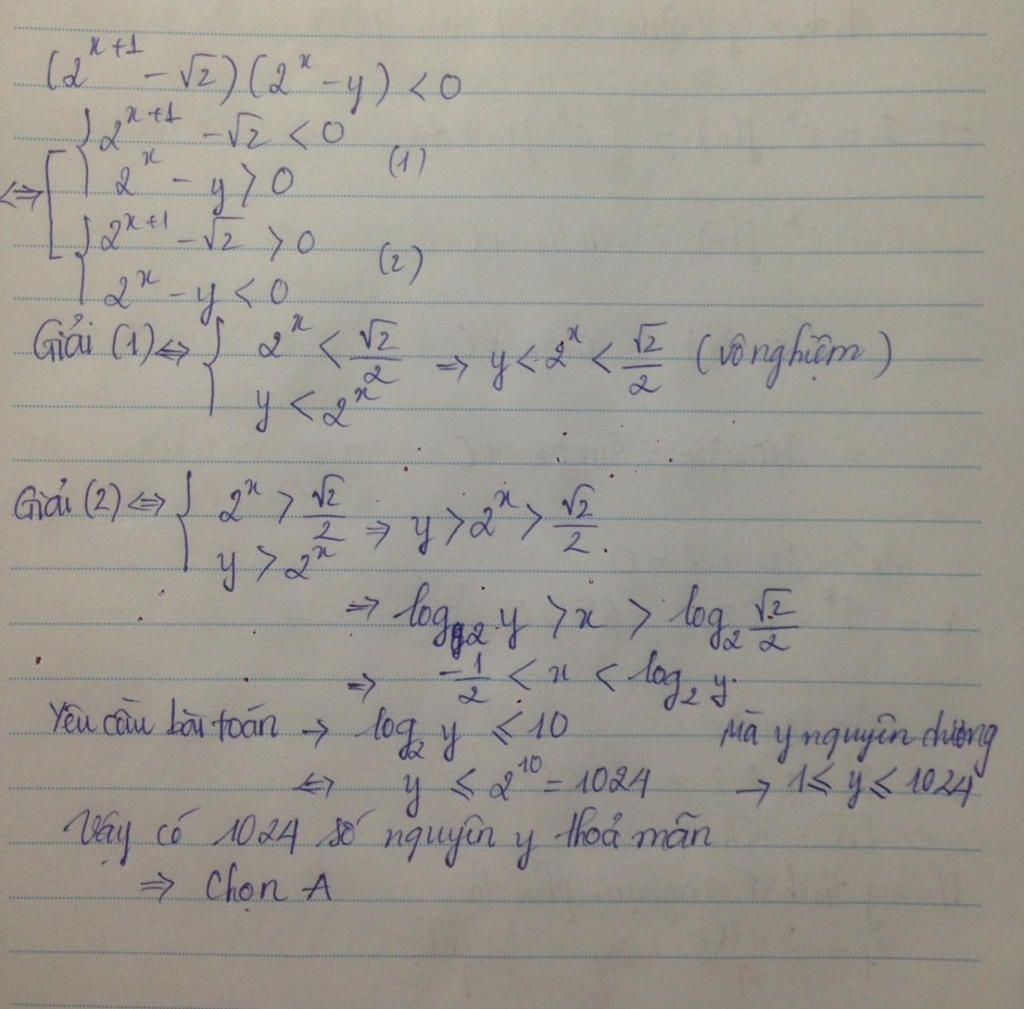 (2^{x+1} - √2)(2^x - y) < 0
⇔ [ { 2^{x+1} - √2 < 0
2^x - y > 0 (1)
{ 2^{x+1} - √2 > 0
2^x - y < 0 (2)
Giải (1) ⇔ { 2^x < √2/2 ⇒ y < 2^x < √2/2 (vô nghiệm)
y < 2^x
Giải (2) ⇔ { 2^x > √2/2 ⇒ y > 2^x > √2/2.
y > 2^x
⇒ log_2 y > x > log_2 √2/2
⇒ -1/2 < x < log_2 y.
Yêu cầu bài toán → log_2 y ≤ 10 Mà y nguyên dương
⇔ y ≤ 2^{10} = 1024 → 1 ≤ y ≤ 1024
Vậy có 1024 số nguyên y thoả mãn
⇒ Chọn A